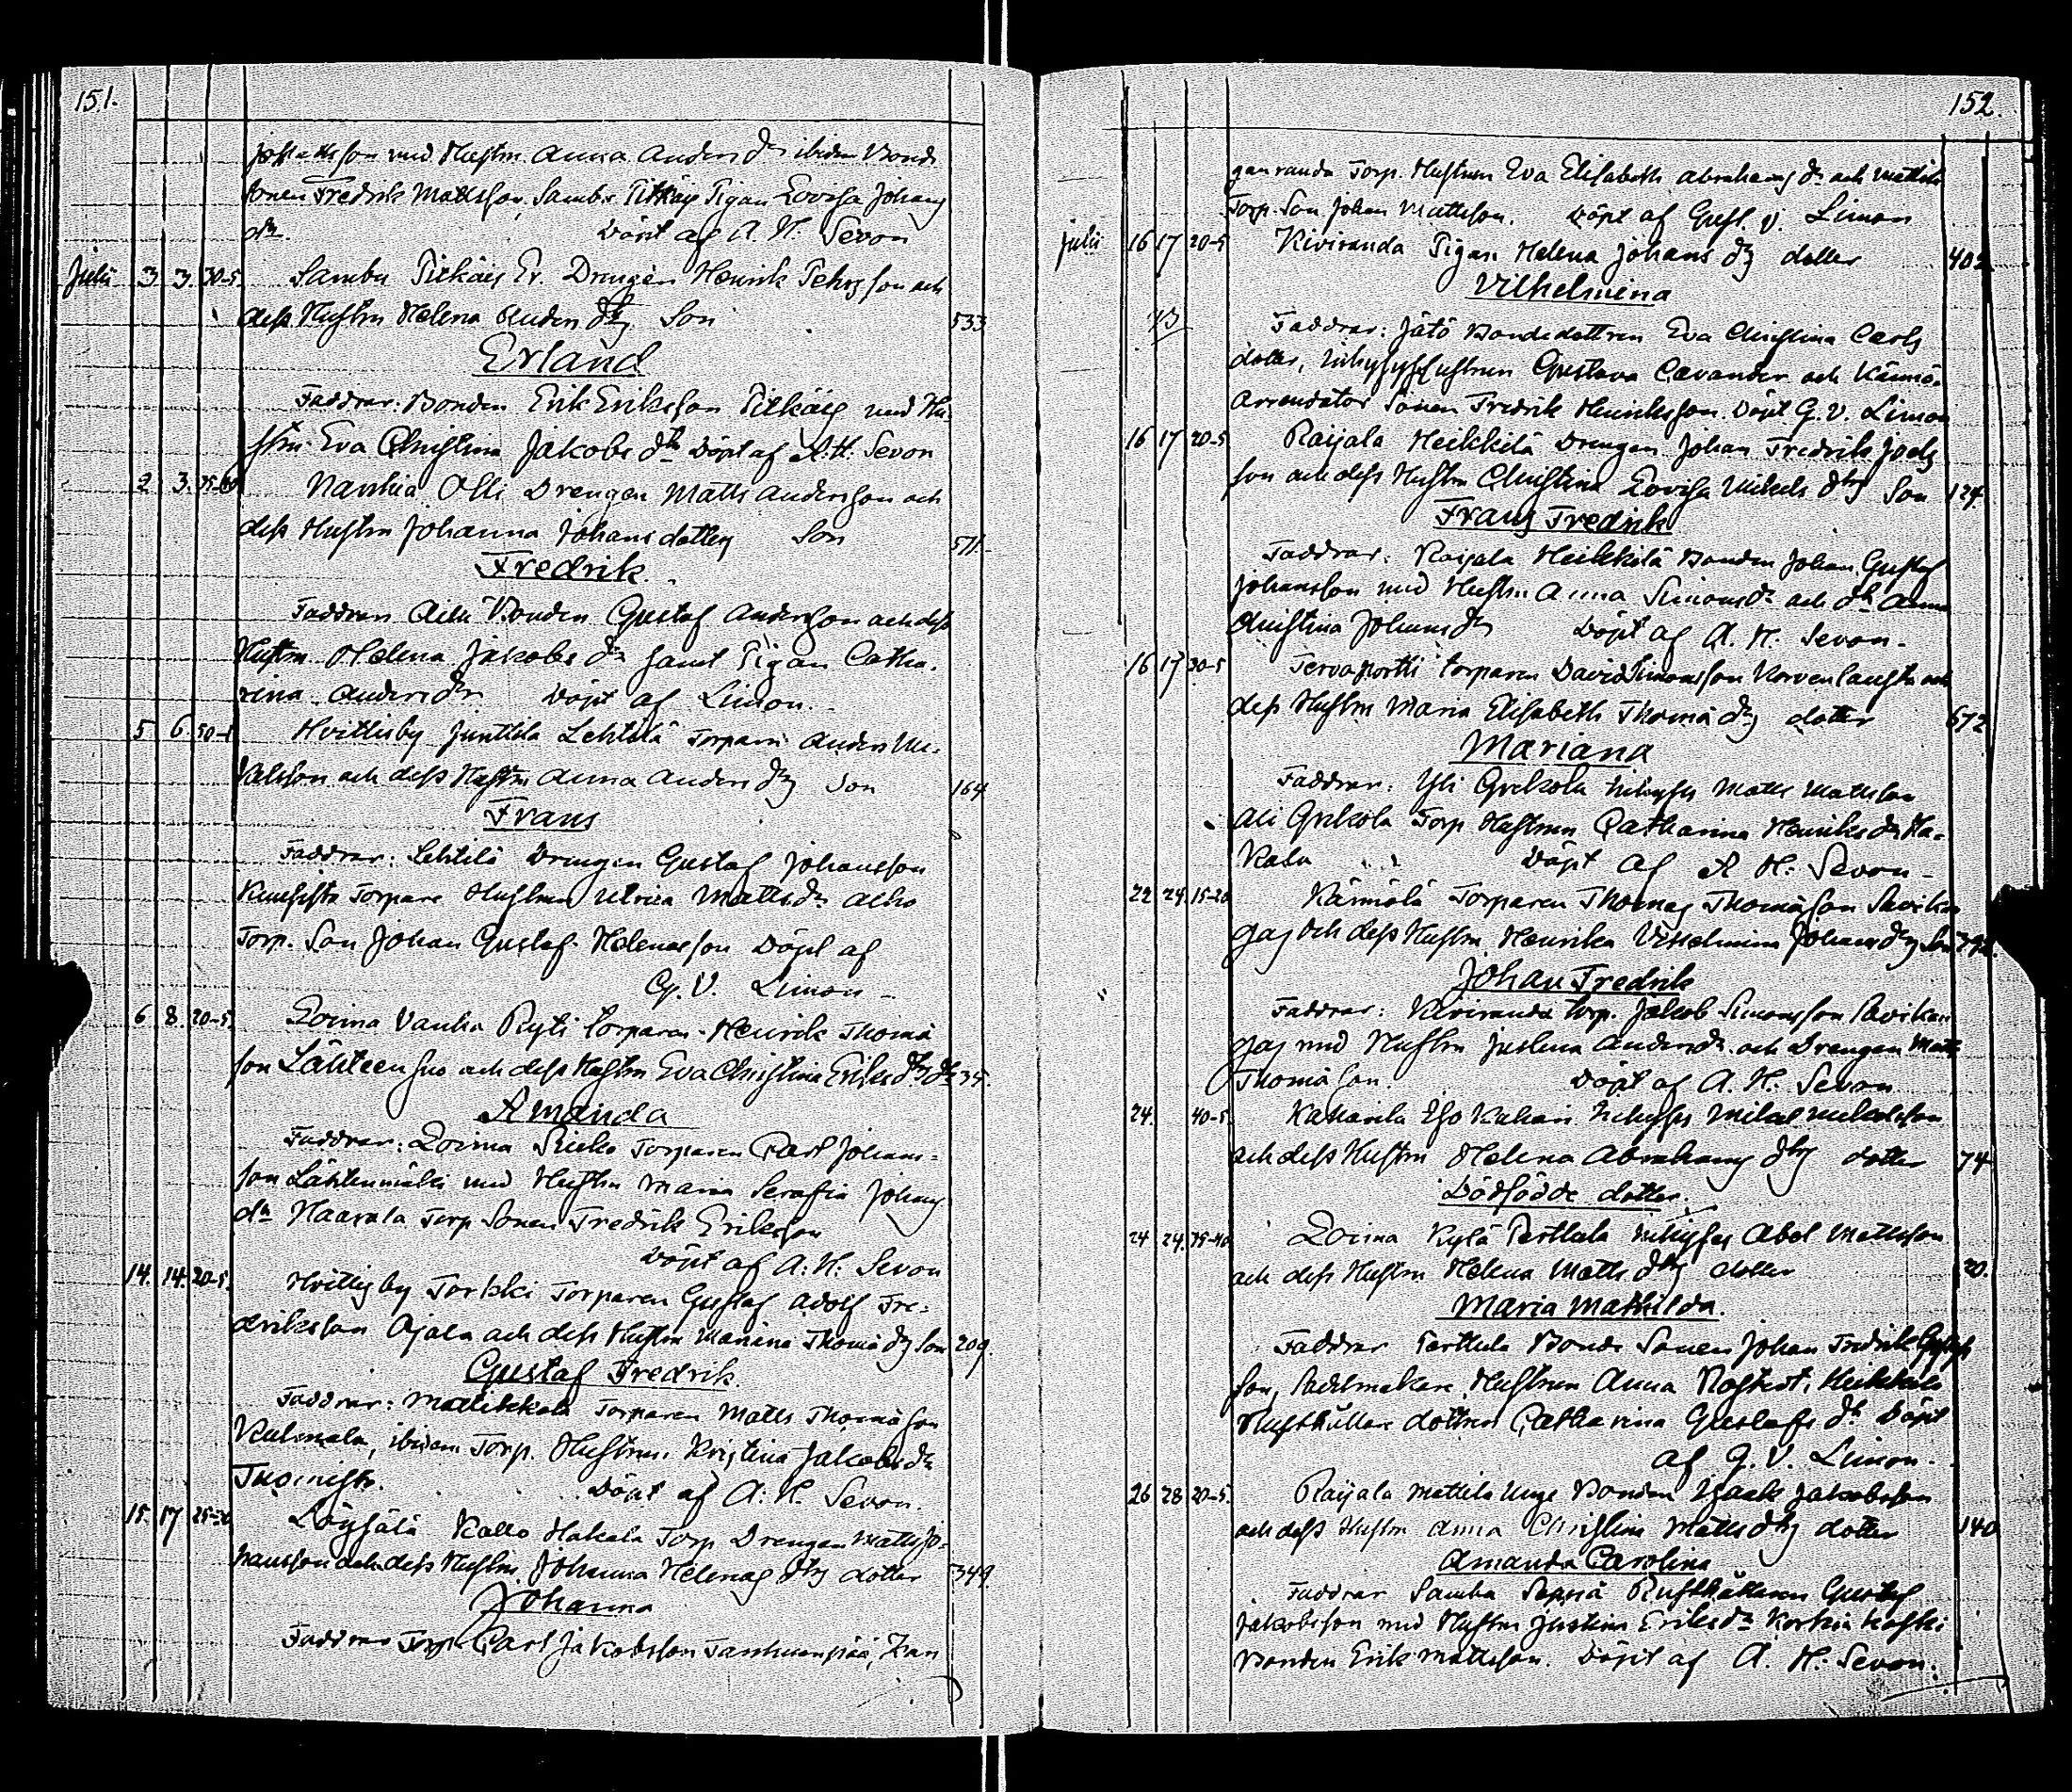 151.
Josephsson med Hustrn. Anna Anders dr ibidem Bonde
sonen Fredrik Mattsson, Sambu Pitkäis Pigan Lovisa Johans
dr. Döpt af A. H. Sevon
Julii 3 3. 30-5. Sambu Pitkäis Er. Drengen Henrik Pehrsson och
dess Hustru Helena Anders drs Son 533
Erland
Faddrar: Bonden Erik Eriksson Pitkäis med Hu-
strn Eva Christina Jakobs dr Döpt af A. H. Sevon
2 3. 35-40 Nanhia Olli Drengen Matts Andersson och
dess Hustru Johanna Johansdotters Son 511.
Fredrik.
Faddrar Bonden Gustaf Andersson och dess
Hustrn Helena Jakobs dr samt Pigan Catha-
rina Anders dr. Döpt af Limon.
5 6 Hvittisby Junttila Lehtilä Torparn Anders Mi-
kelsson och dess Hustru Anna Anders drs Son 164
Frans
Faddrar: Lehtilä Drengen Gustaf Johansson
Torpare Hustrun Ulrica Matts dr
Torp. Son Johan Gustaf Helenasson Döpt af
G. V. Limon
6 8. 20-5. Loima Vanha Pyti torparen Henrik Thomä
son Lähteensuo och dess Hustru Eva Christina Eriks drs dr 35.
Amanda
Faddrar: Loima Torparen Carl Johans-
son Lähtenmäki med Hustru Maria Serafia Johans
dr Haavala Torp Sonen Fredrik Eriksson
Döpt af A. H. Sevon
14. 14. 20-5. Hvittisby Torkki Torparen Gustaf Adolf Fre-
driksson Ojala och dess Hustru Mariana Thomä drs Son 209.
Gustaf Fredrik.
Faddrar: Mattikkala Torparen Matts Thomäson
Kulmala, ibidem Torp. Hustrun Kristina Jakobs dr
Döpt af A. H. Sevon.
15. 17 25-30 Löysälä Kallo Hakala Torp Drengen Matts Jo-
hansson och dess Hustru Johanna Helenas drs dotter 349.
Johanna
Faddrar Torp. Carl Jakobsson Tanhuanpää, Kan
152.
ganranda Torp. Hustrun Eva Elisabeth Abrahams dr och
Torp. Son Johan Mattsson. Döpt af Gust. V. Limon
Julii 16 17 20-5 Kiviranda Pigan Helena Johans drs dotter 402
Vilhelmina
Faddrar: Jätö Bondedottren Eva Christina Carls
dotter, Inhyseshustrun Gustava Cavander och Kännö-
Arrendator Sonen Fredrik Henriksson. Döpt G. V. Limon
16 17 20-5 Raijala Heikkilä Drengen Johan Fredrik Joels
son och dess Hustru Christina Lovisa Mickels drs Son 124.
Frans Fredrik
Faddrar: Raijala Heikkilä Bonden Johan Gustaf
Johansson med Hustru Anna Simons dr och dr Anna
Christina Johans dr Döpt af A. H. Sevon.
16 17 30-5 Tervaportti torparen David Simonsson och
dess Hustru Maria Elisabeth Thomä drs dotter 672
Mariana
Faddrar: Yli Grekola Inhyses Matts Mattsson
Ali Grekola Torp Hustrun Catharina Henriks dr Ha-
kala Döpt af A. H. Sevon.
22 24. 15-20 Kännölä Torparen Thomas Thomäson Savikan
gas och dess Hustru Henrika Vilhelmina Johans drs Son 392.
Johan Fredrik
Faddrar: Kiviranda torp. Jakob Simonsson Savikan
gas med Hustru Justina Anders dr och Drengen Matts
Thomäson. Döpt af A. H. Sevon
24. 40-5. Iso Inhyses Mikel Mickelsson
och dess Hustru Helena Abrahams drs dotter 74
Dödfödde dotter.
24 24. 35-40 Loima Kylä Perttula Inhyses Abel Mattsson
och dess Hustru Helena Matts drs dotter 20.
Maria Mathilda.
Faddrar Perttula Bonde Sonen Johan Fredrik Gustafs
son, Sadelmakare Hustrun Anna Heikkilä
Rusthållare dottren Catharina Gustafs dr Döpt
af G. V. Limon.
26 28 20-5. Raijala Mattila Unge Bonden Isaak Jakobsson
och dess Hustru Anna Christina Matts drs dotter 140
Amanda Carolina
Faddrar Sambu Seppä Rusthållaren Gustaf
Jakobsson med Hustru Justina Eriks dr Korkiakoski
Bonden Erik Mattsson. Döpt af A. H. Sevon.